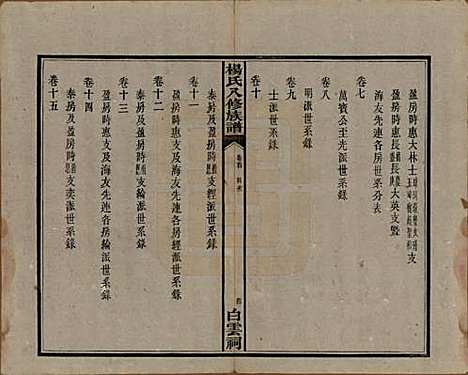 卷七
盈房時惠大林士
盈房時惠長大英支暨
海友先連各房世系分表
卷八
萬賓公王光派世系錄
卷九
明派世系錄
卷十
士派世系錄
楊氏八修族譜
白雲祠
卷十一
泰房及盈房時惠支經派世系錄
卷十二
盈房時惠支及海友先連各房經派世系錄
卷十三
泰房及盈房時支綸派世系錄
卷十四
盈房時惠支及海友先連各房綸派世系錄
卷十五
泰房及盈房時支奕派世系錄